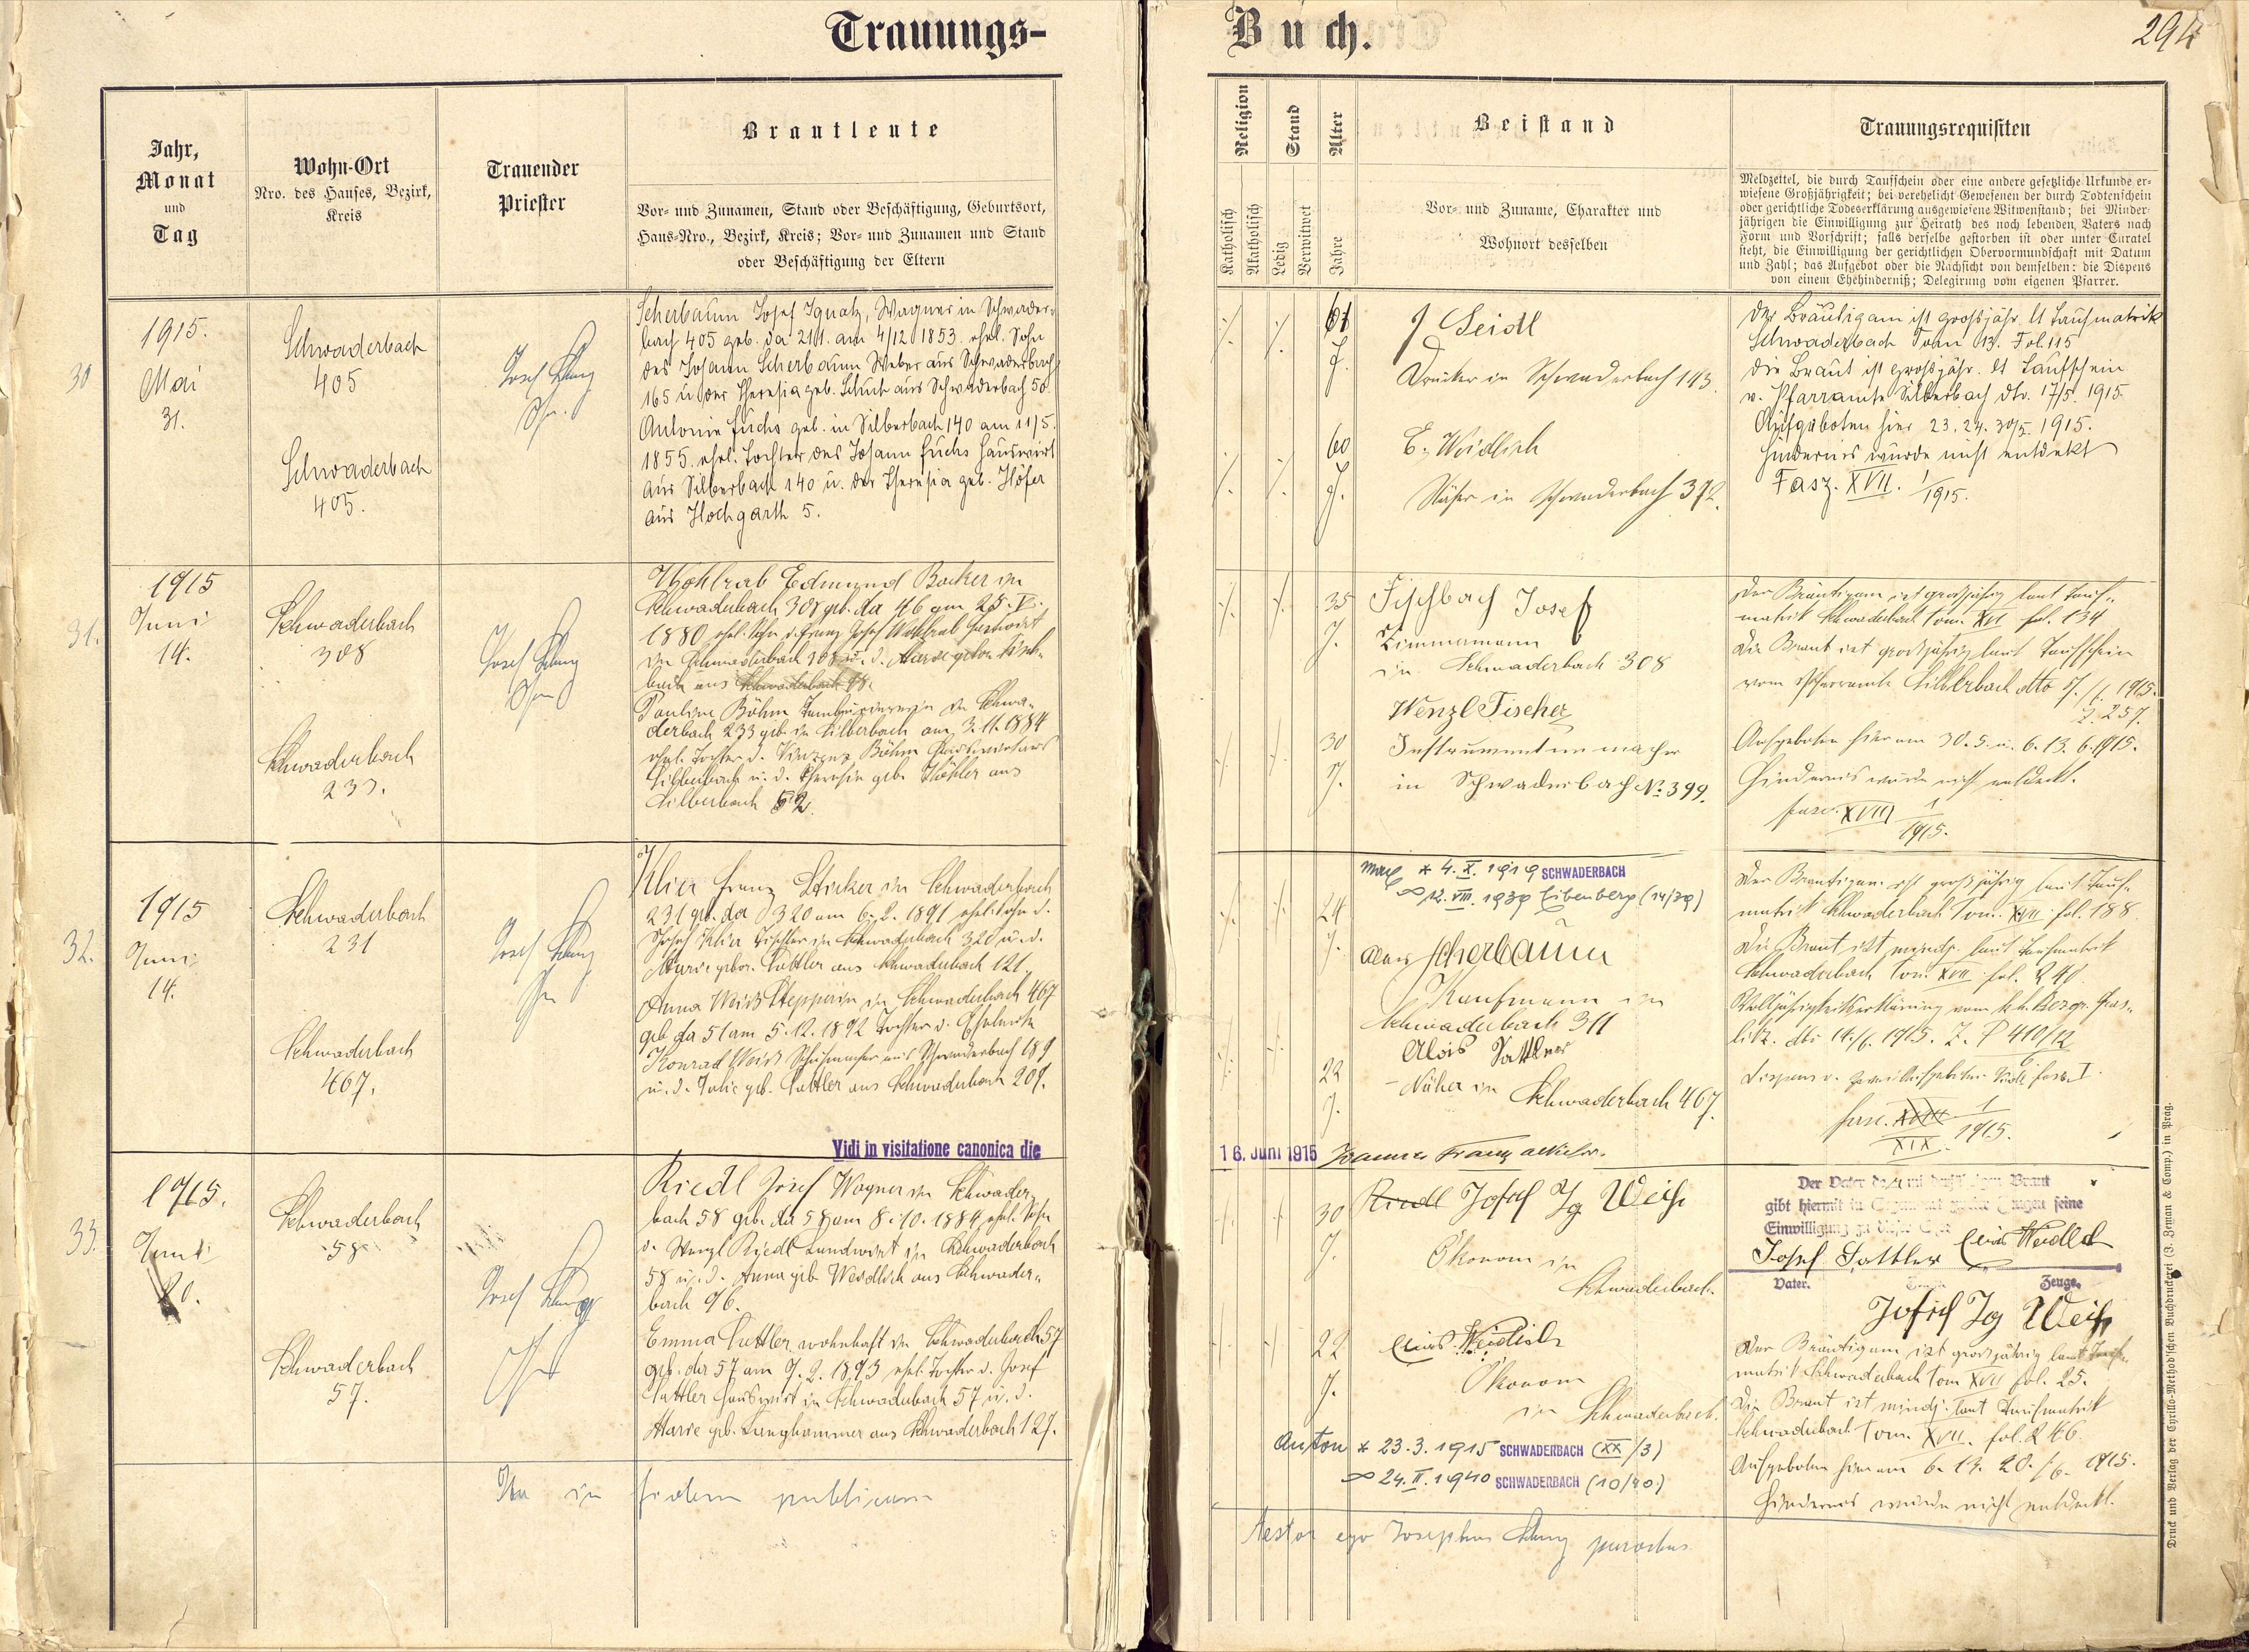 Trauungs-
Buch.
294
Jahr,
Monat
und
Tag
Wohn-Ort
Nro. des Hauses, Bezirk,
Kreis
Trauender
Priester
Brautleute
Vor- und Zunamen, Stand oder Beschäftigung, Geburtsort,
Haus-Nro., Bezirk, Kreis; Vor- und Zunamen und Stand
oder Beschäftigung der Eltern
Religion
Katholisch
Akatholisch
Stand
Ledig
Verwitwet
Alter
Jahre
Beistand
Vor- und Zuname, Charakter und
Wohnort desselben
Trauungsrequisiten
Meldzettel, die durch Taufschein oder eine andere gesetzliche Urkunde er-
wiesene Großjährigkeit; bei verehelicht Gewesenen der durch Todtenschein
oder gerichtliche Todeserklärung ausgewiesene Witwenstand; bei Minder-
jährigen die Einwilligung zur Heirath des noch lebenden Vaters nach
Form und Vorschrift; falls derselbe gestorben ist oder unter Curatel
steht, die Einwilligung der gerichtlichen Obervormundschaft mit Datum
und Zahl; das Aufgebot oder die Nachsicht von demselben; die Dispens
von einem Ehehinderniß; Delegirung vom eigenen Pfarrer.
30
1915.
Mai
31.
Schwaderbach
405
Schwaderbach
405.
Scherbaum Josef Ignatz, Wagner in Schwader-
bach 405 geb. da 211 am 4/12 1853. ehel. Sohn
des Johann Scherbaum Weber aus Schwaderbach
165 u. der Theresia geb. Schuh aus Schwaderbach 50.
Antonie Fuchs geb. in Silberbach 140 am 11/5.
1855. ehel. Tochter des Johann Fuchs Hauswirt
aus Silberbach 140 u. der Theresia geb. Höfer
aus Hochgarth 5.
61
J.
J Seidl
Drucker in Schwaderbach 143.
60
J.
E. Weidlich
Näher in Schwaderbach 372.
Der Bräutigam ist großjähr. lt Taufmatrik
Schwaderbach Tom 13. Fol. 115
die Braut ist großjähr. lt Taufschein
v. Pfarramte Silberbach dto. 17/5. 1915.
Aufgeboten hier 23. 24. 30/5. 1915.
Hindernis wurde nicht entdekt
Fasz. XVII. 1/1915.
31.
1915
Juni
14.
Schwaderbach
308
Schwaderbach
233.
Wohlrab Edmund Backer in
Schwaderbach 308 geb. da 46 am 25. V.
1880 ehel. Sohn d. Franz Josef Wohlrab Hauswirt
in Schwaderbach 308 u. d. Marie gebor. Fisch-
bach aus
Pauline Böhm in Schwa-
derbach 233 geb. in Silberbach am 3. 11. 1884
ehel. Tochter d. Vinzenz Böhm
Silberbach u. d. Theresia geb. Köhler aus
Silberbach 52.
35
J.
Fischbach Josef
Zimmermann
in Schwaderbach 308
Wenzl Fischer
30
J.
Instrumentenmacher
in Schwaderbach No. 399.
Der Bräutigam ist großjährig laut Tauf-
matrik Schwaderbach Tom. XVI fol. 134
Die Braut ist großjährig laut Taufschein
vom Pfarramte Silberbach dto 1915.
Z. 257.
Aufgeboten hier am 30. 5. u. 6. 13. 6. 1915.
Hindernis wurde nicht entdeckt.
fasc. XVIII 1/1915.
32.
1915
Juni
14.
Schwaderbach
231
Schwaderbach
467.
Klier Franz Sticker in Schwaderbach
231 geb. da 320 am 6. 2. 1891 ehel. Sohn d.
Josef Klier Tischler in Schwaderbach 320 u. d.
Marie gebor. Sattler aus Schwaderbach 121.
Anna Weiß Stepperin in Schwaderbach 467
geb. da 51 am 5. 12. 1892 Tochter d.
Konrad Weiß Schuhmacher aus Schwaderbach 189
u. d. Julie geb. Sattler aus Schwaderbach 201.
* 4. X. 1919 SCHWADERBACH
∞ 12. VIII. 1939 Eibenberg (14/39)
24
J.
Scherbaum
Kaufmann in
Schwaderbach 311
22
J.
Alois Sattler
Näher in Schwaderbach 467.
Der Bräutigam ist großjährig laut Tauf-
matrik Schwaderbach Tom. XVII fol. 188.
Die Braut ist minderj. laut Taufmatrik
Schwaderbach Tom. XVII fol. 241.
Volljährigkeitserklärung vom k. k. Bezgr. Gras-
litz. dto 14./6. 1915. Z. P 410/12
6
fasc.
XIX. 1/1915.
Vidi in visitatione canonica die
16. Juni 1915
33.
1915.
Juni
20.
Schwaderbach
58
Schwaderbach
57.
Riedl Josef Wagner in Schwader-
bach 58 geb. da 58 am 8. 10. 1884 ehel. Sohn
d. Wenzl Riedl Landwirt in Schwaderbach
58 u. d. Anna geb. Weidlich aus Schwader-
bach 96.
Emma Sattler wohnhaft in Schwaderbach 57
geb. da 57 am 9. 2. 1893 ehel. Tochter d. Josef
Sattler Hauswirt in Schwaderbach 57 u. d.
Marie geb. Langhammer aus Schwaderbach 127.
30
J.
Riedl Josef Ig Weiß
Ökonom in
Schwaderbach.
22
J.
Weidlich
Ökonom
in Schwaderbach.
Anton * 23. 3. 1915 SCHWADERBACH (XX/3)
∞ 24. II. 1940 SCHWADERBACH (10/40)
Der Vater der minderjährigen Braut
gibt hiermit in Gegenwart zweier Zeugen seine
Einwilligung zu dieser Ehe
Josef Sattler
Vater.
Zeuge.
Josef Ig Weiß
Der Bräutigam ist großjährig laut Tauf-
matrik Schwaderbach Tom XVII fol. 25.
Die Braut ist mindj. laut Taufmatrik
Schwaderbach Tom. XVII. fol. 246
Aufgeboten hier am 6. 13. 20. /6. 1915.
Hindernis wurde nicht entdeckt.
in fidem publicam
testor ego Josephus parochus
Druck und Verlag der Cyrillo-Method'schen Buchdruckerei (J. Zeman & Comp.) in Prag.